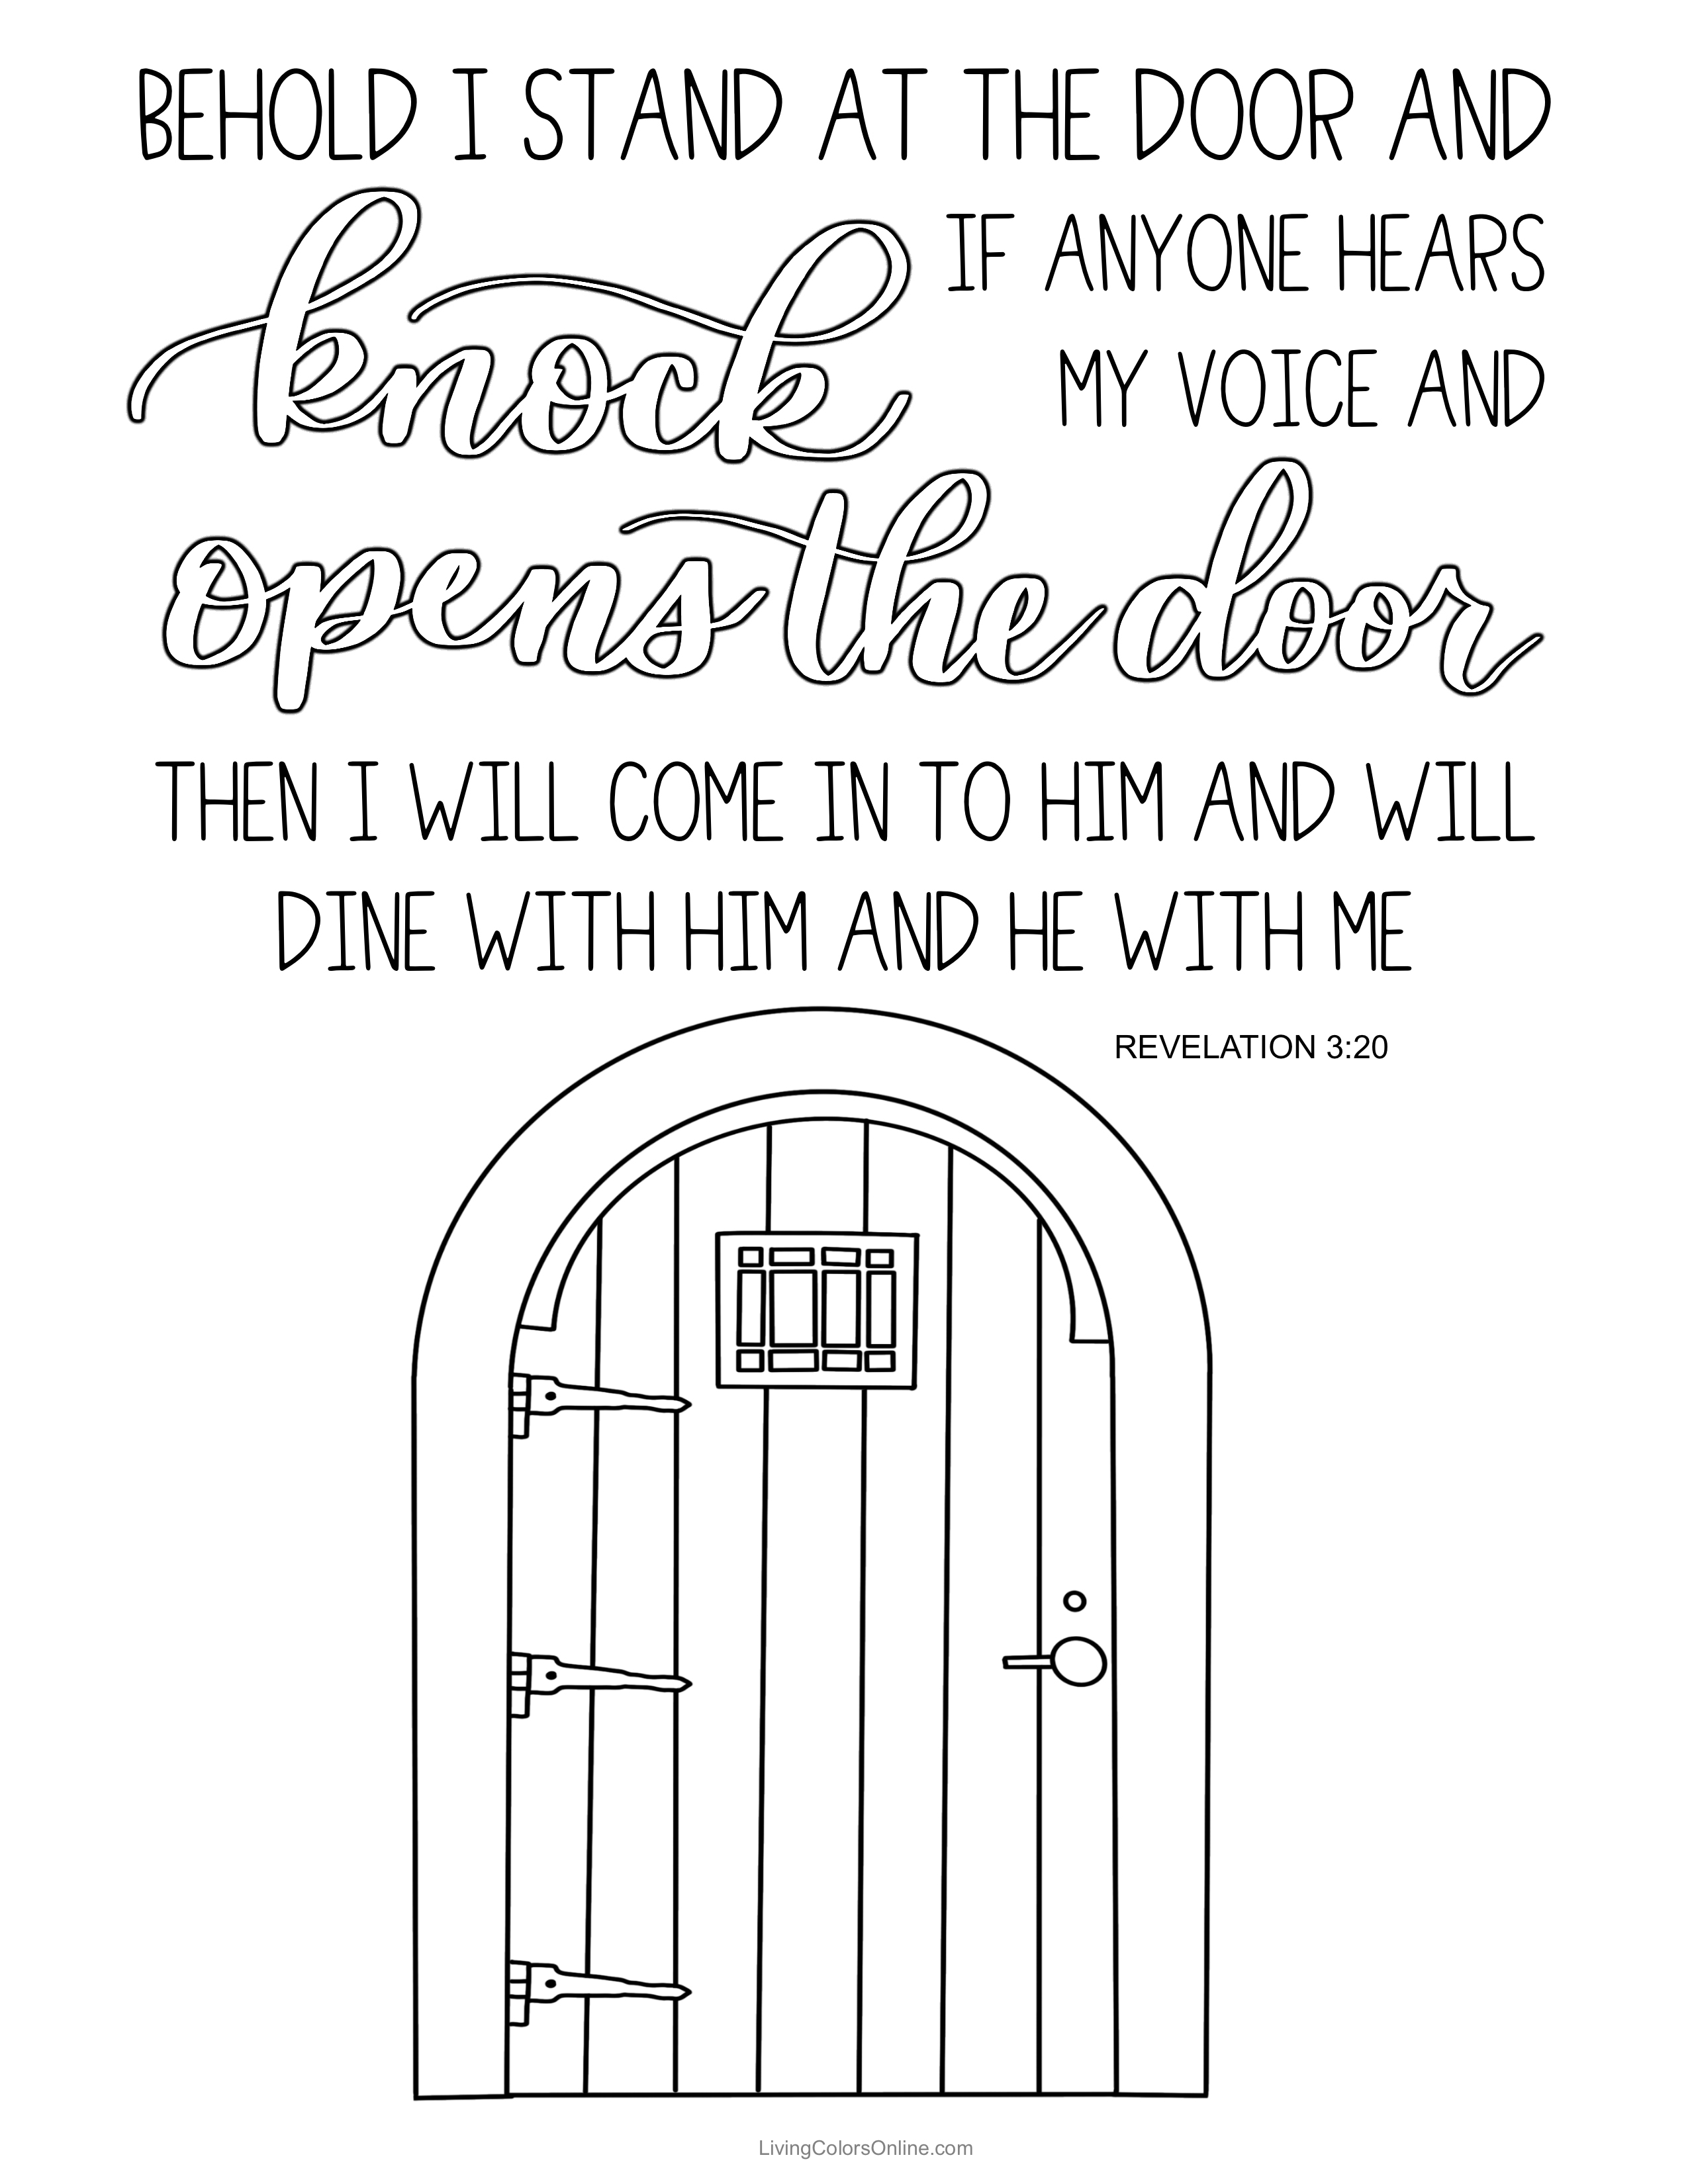 BEHOLD I STAND AT THE DOOR AND
knock IF ANYONE HEARS
MY VOICE AND
opens the door
THEN I WILL COME IN TO HIM AND WILL
DINE WITH HIM AND HE WITH ME
REVELATION 3:20
LivingColorsOnline.com